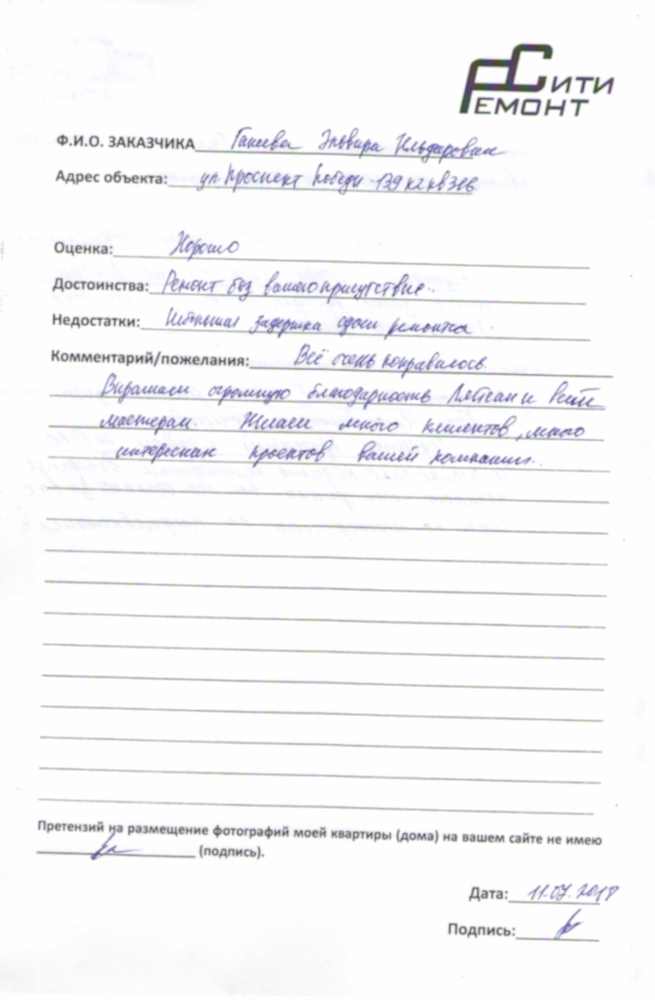 СИТИ
РЕМОНТ
Ф.И.О. ЗАКАЗЧИКА Ганеева Эльвира Ильдаровна
Адрес объекта: ул Проспект Победы 139 к2 кв 306
Оценка: Хорошо
Достоинства: Ремонт без вашего присутствие.
Недостатки: задержка сдачи ремонта.
Комментарий/пожелания: Всё очень понравилось.
Выражаем огромную благодарность Ляйсан и
мастерам. Желаем много клиентов, много
интересных проектов вашей компании.
Претензий на размещение фотографий моей квартиры (дома) на вашем сайте не имею
(подпись).
Дата: 11.07.2018
Подпись: